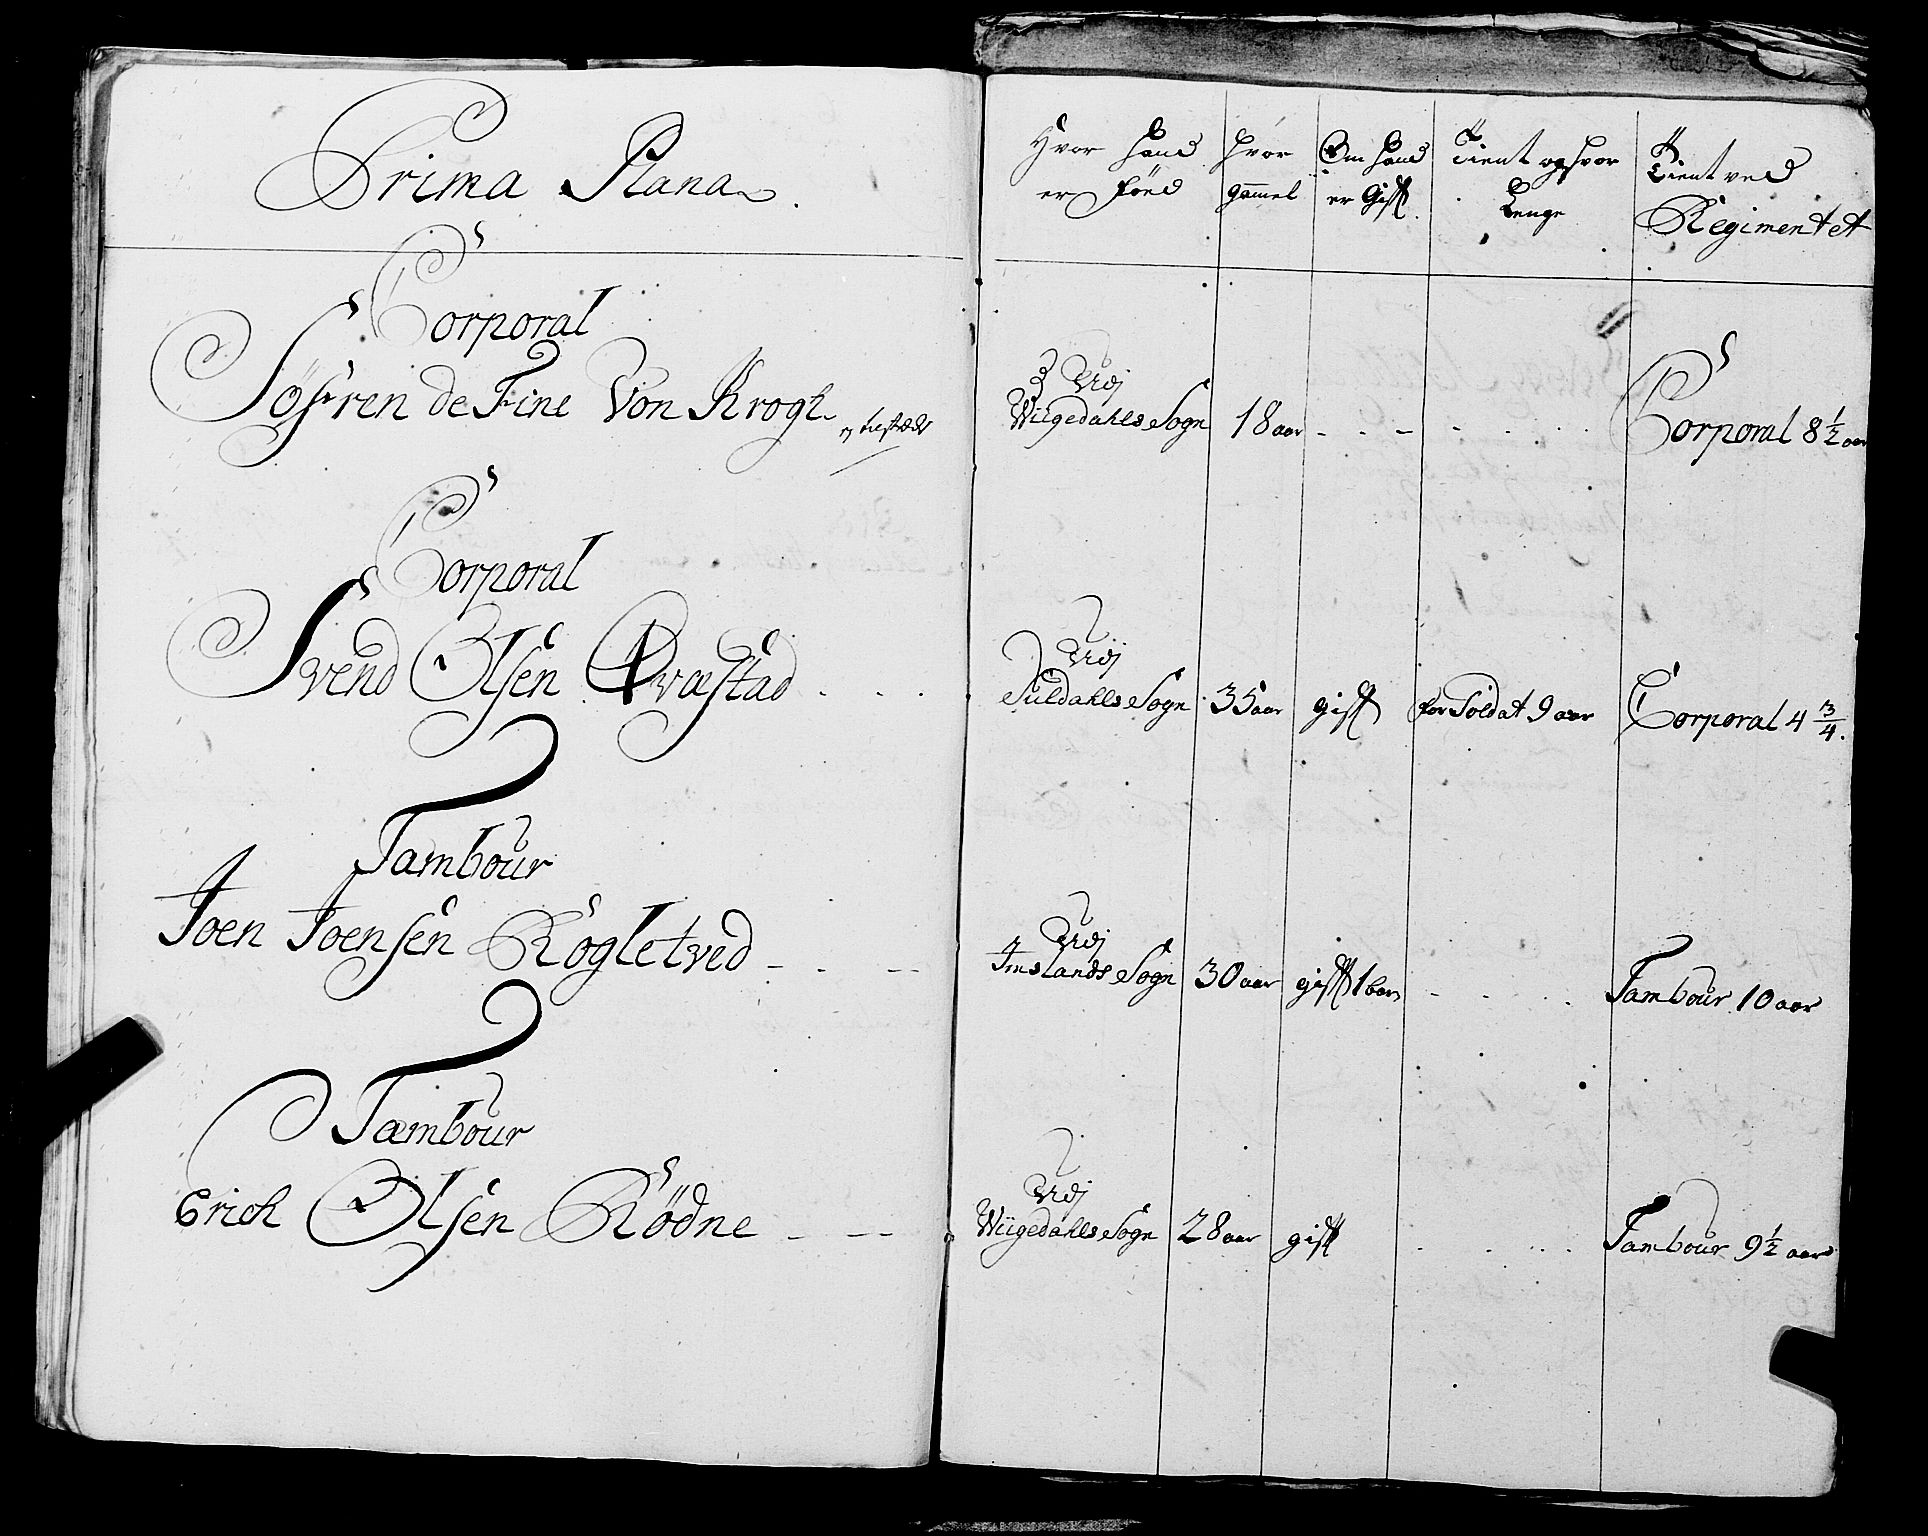 Prima Plana.
Corporal
Søfren de Fine Von Krogh
Corporal
Svend Olsen Qvæstad . . .
Tambour
Joen Joensen Rogletved - . --
Tambour
Erich Olsen Rødne - --
Hvor hand
er føed
hvor
gamel
Om hand
er Gift.
Tient og hvor
Lenge
Tient ved
Regimentet
Udj
Wiigedahls Sogn 18 aar - . - - . . . . Corporal 8 1/2 aar
Udj
Suldahls Sogn 35 aar gift for Soldat 9 aar Corporal 4 3/4.
Udj
Imslands Sogn 30 aar gift 1 barn - . . . Tambour 10 aar
Udj
Wiigedahls Sogn 28 aar gift . . . . . Tambour 9 1/2 aar